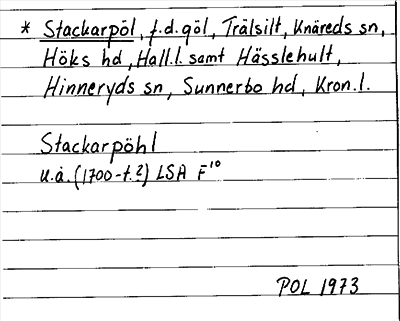 * Stackarpöl, f.d. göl, Trälsilt, Knäreds sn,
Höks hd, Hall.l. samt Hässlehult,
Hinneryds sn, Sunnerbo hd, Kron.l.
Stackarpöhl
u.å. (1700-t.?) LSA F¹⁰
POL 1973